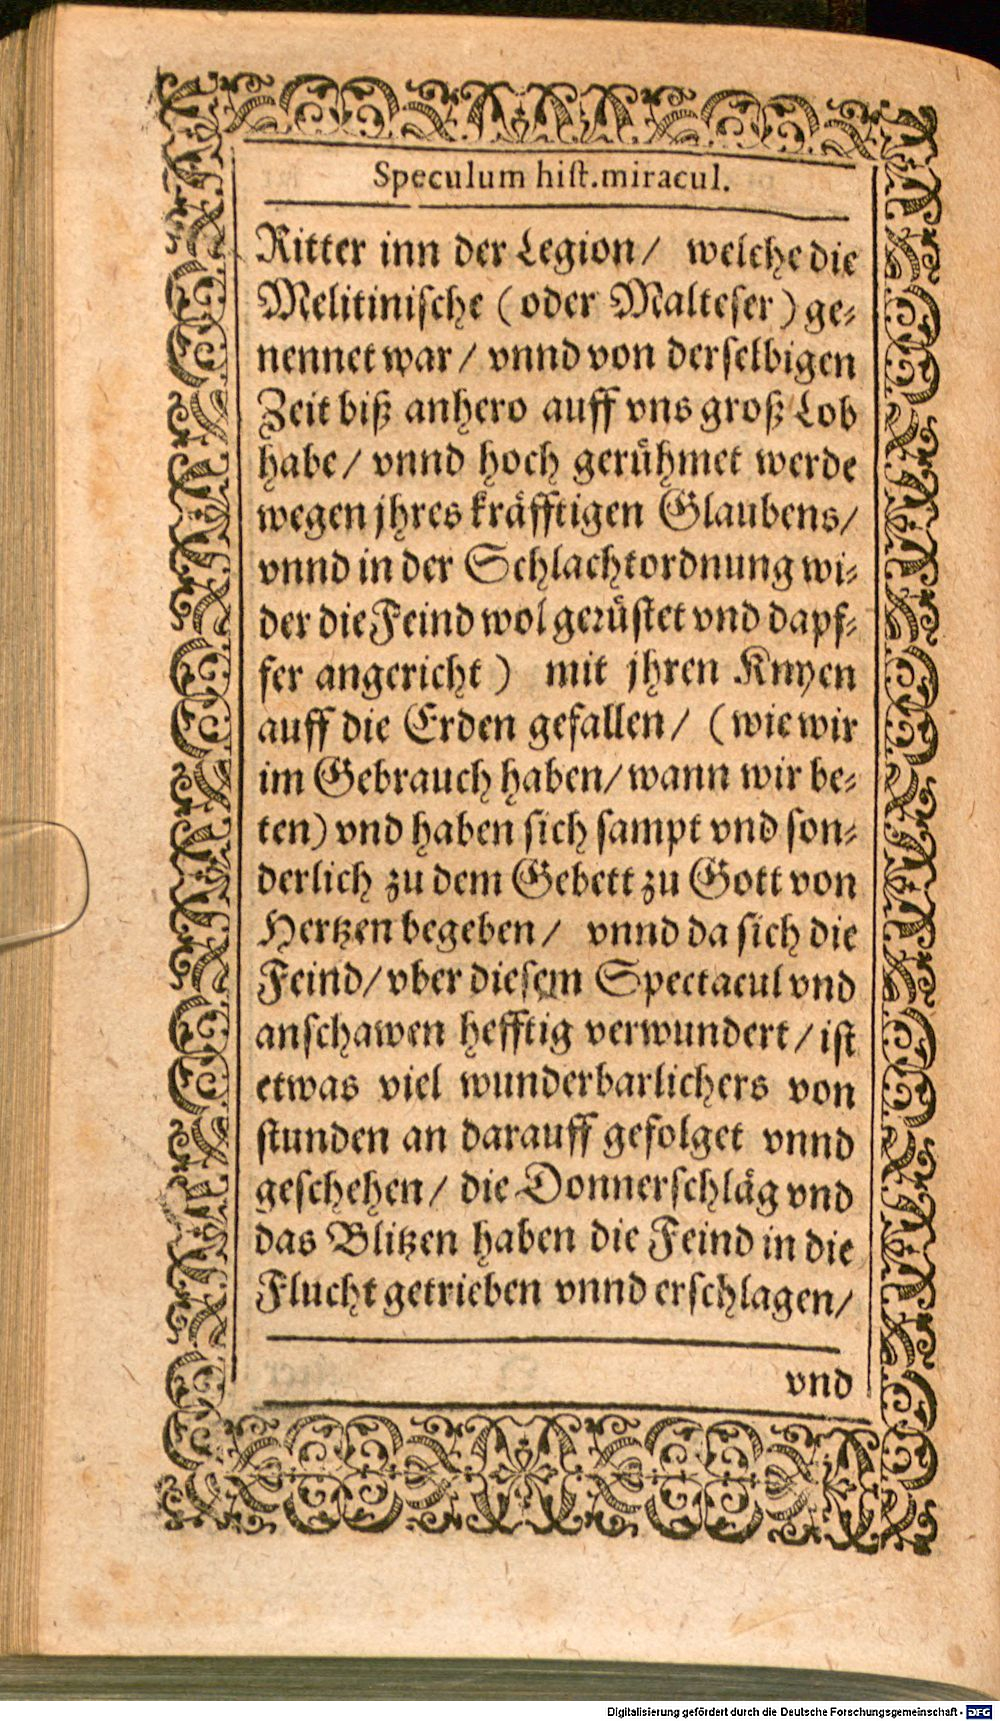 Speculum hist.miracul.
Ritter inn der Legion/ welche die
Melitinische (oder Malteser) ge-
nennet war/ vnnd von derselbigen
Zeit biß anhero auff vns groß Lob
habe/ vnnd hoch gerühmet werde
wegen jhres kräfftigen Glaubens/
vnnd in der Schlachtordnung wi-
der die Feind wol gerüstet vnd dapf-
fer angericht) mit jhren Knyen
auff die Erden gefallen/ (wie wir
im Gebrauch haben/ wann wir be-
ten) vnd haben sich sampt vnd son-
derlich zu dem Gebett zu Gott von
Hertzen begeben/ vnnd da sich die
Feind/ vber diesem Spectacul vnd
anschawen hefftig verwundert/ ist
etwas viel wunderbarlichers von
stunden an darauff gefolget vnnd
geschehen/ die Donnerschläg vnd
das Blitzen haben die Feind in die
Flucht getrieben vnnd erschlagen/
vnd
Digitalisierung gefördert durch die Deutsche Forschungsgemeinschaft - DFG